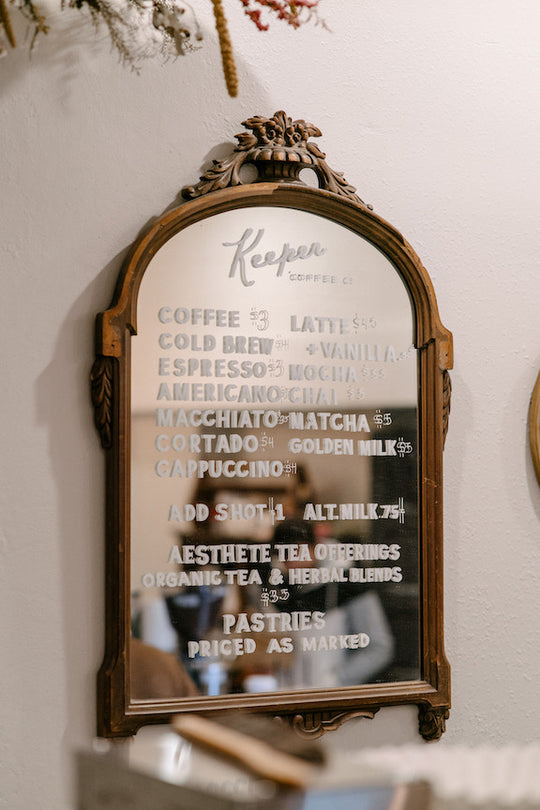 Keeper
COFFEE CO
COFFEE $3 LATTE $4.5
COLD BREW $4 +VANILLA
ESPRESSO $3 MOCHA $5.5
AMERICANO CHAI $5
MACCHIATO MATCHA $5
CORTADO $4 GOLDEN MILK $5
CAPPUCCINO $4
ADD SHOT $1 ALT. MILK .75
AESTHETE TEA OFFERINGS
ORGANIC TEA & HERBAL BLENDS
PASTRIES
PRICED AS MARKED